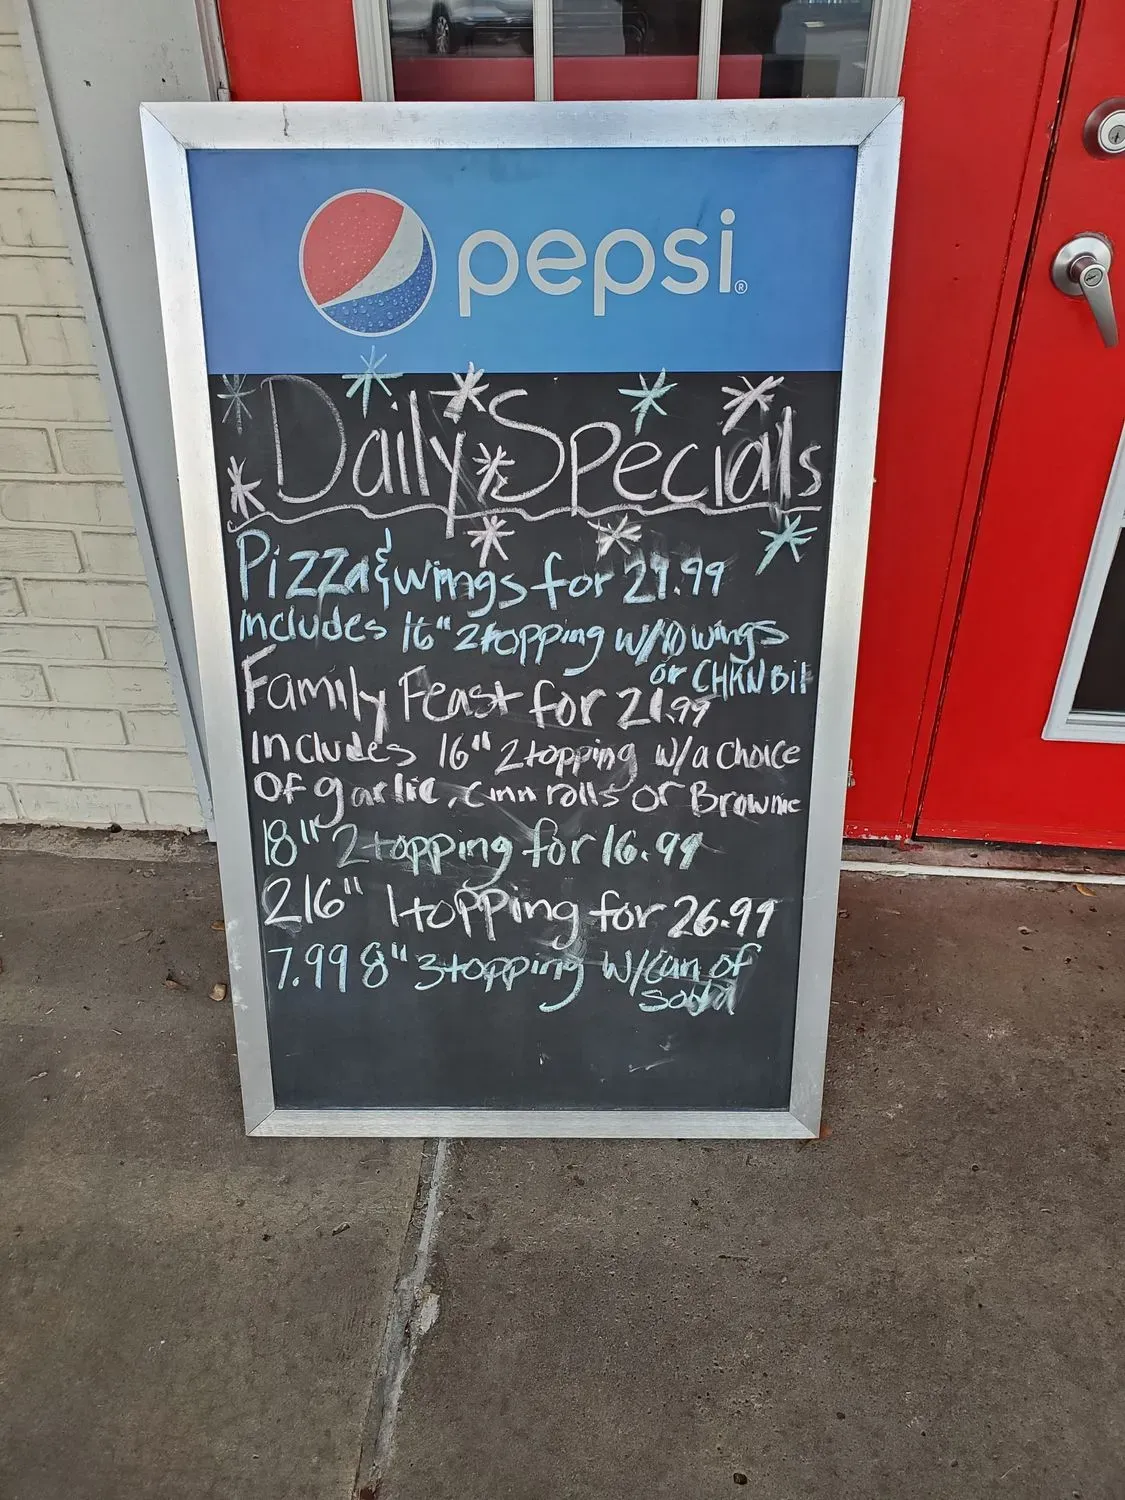 pepsi®
Daily Specials
Pizza & wings for 27.99
includes 16" 2 topping w/10 wings
or CHKN Bit
Family Feast for 21.99
Includes 16" 2 topping w/a choice
OF garlic, cinn rolls or Brownie
18" 2 topping for 16.99
2 16" 1 topping for 26.99
7.99 8" 3 topping w/can of
soda